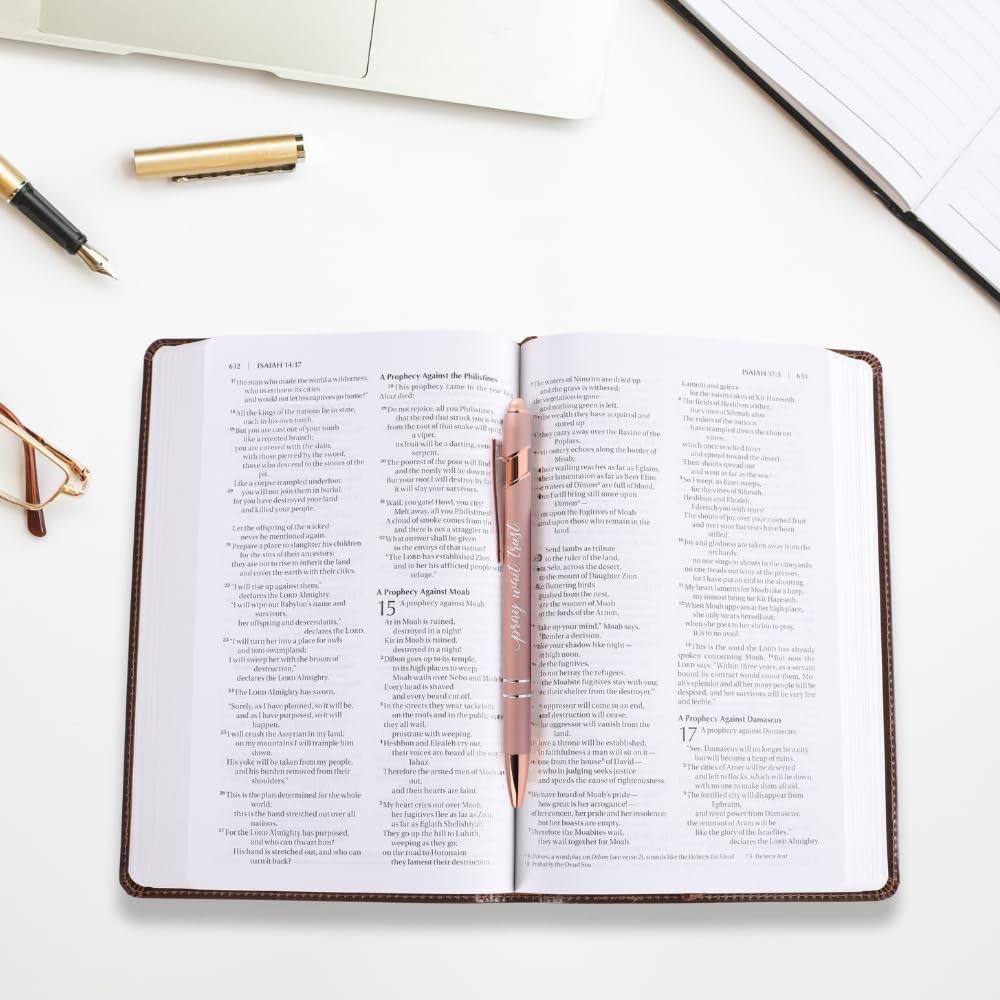 632 | ISAIAH 14:17
17the man who made the world a wilderness,
who overthrew its cities
and would not let his captives go home?"
18All the kings of the nations lie in state,
each in his own tomb.
19But you are cast out of your tomb
like a rejected branch;
you are covered with the slain,
with those pierced by the sword,
those who descend to the stones of the
pit.
Like a corpse trampled underfoot,
20 you will not join them in burial,
for you have destroyed your land
and killed your people.
Let the offspring of the wicked
never be mentioned again.
21Prepare a place to slaughter his children
for the sins of their ancestors;
they are not to rise to inherit the land
and cover the earth with their cities.
22"I will rise up against them,"
declares the LORD Almighty.
"I will wipe out Babylon's name and
survivors,
her offspring and descendants,"
declares the LORD.
23"I will turn her into a place for owls
and into swampland;
I will sweep her with the broom of
destruction,"
declares the LORD Almighty.
24The LORD Almighty has sworn,
"Surely, as I have planned, so it will be,
and as I have purposed, so it will
happen.
25I will crush the Assyrian in my land;
on my mountains I will trample him
down.
His yoke will be taken from my people,
and his burden removed from their
shoulders."
26This is the plan determined for the whole
world;
this is the hand stretched out over all
nations.
27For the LORD Almighty has purposed,
and who can thwart him?
His hand is stretched out, and who can
turn it back?
A Prophecy Against the Philistines
28This prophecy came in the year
Ahaz died:
29Do not rejoice, all you Philistines,
that the rod that struck you is
from the root of that snake will spring
a viper,
its fruit will be a darting,
serpent.
30The poorest of the poor will find
and the needy will lie down in
But your root I will destroy by
it will slay your survivors.
31Wail, you gate! Howl, you city!
Melt away, all you Philistines
A cloud of smoke comes from the
and there is not a straggler in
32What answer shall be given
to the envoys of that nation?
"The LORD has established Zion,
and in her his afflicted people will
refuge."
A Prophecy Against Moab
15 A prophecy against Moab:
Ar in Moab is ruined,
destroyed in a night!
Kir in Moab is ruined,
destroyed in a night!
2Dibon goes up to its temple,
to its high places to weep;
Moab wails over Nebo and Medeba
Every head is shaved
and every beard cut off.
3In the streets they wear sackcloth;
on the roofs and in the public
they all wail,
prostrate with weeping.
4Heshbon and Elealeh cry out,
their voices are heard all the way
Jahaz.
Therefore the armed men of Moab
out,
and their hearts are faint.
5My heart cries out over Moab;
her fugitives flee as far as Zoar,
as far as Eglath Shelishiyah.
They go up the hill to Luhith,
weeping as they go;
on the road to Horonaim
they lament their destruction.
pray wait trust
ISAIAH 17:3 | 633
6The waters of Nimrim are dried up
and the grass is withered;
the vegetation is gone
and nothing green is left.
the wealth they have acquired and
stored up
they carry away over the Ravine of the
Poplars.
outcry echoes along the border of
Moab;
their wailing reaches as far as Eglaim,
their lamentation as far as Beer Elim.
waters of Dimon are full of blood,
but I will bring still more upon
Dimon—
upon the fugitives of Moab
and upon those who remain in the
land.
Send lambs as tribute
to the ruler of the land,
from Sela, across the desert,
to the mount of Daughter Zion.
Like fluttering birds
pushed from the nest,
are the women of Moab
at the fords of the Arnon.
up your mind," Moab says.
"Render a decision.
Make your shadow like night—
at high noon.
the fugitives,
do not betray the refugees.
the Moabite fugitives stay with you;
be their shelter from the destroyer."
oppressor will come to an end,
and destruction will cease;
the aggressor will vanish from the
land.
In love a throne will be established;
in faithfulness a man will sit on it—
one from the house of David—
one who in judging seeks justice
and speeds the cause of righteousness.
6We have heard of Moab's pride—
how great is her arrogance!—
of her conceit, her pride and her insolence;
but her boasts are empty.
7Therefore the Moabites wail,
they wail together for Moab.
Lament and grieve
for the raisin cakes of Kir Hareseth.
8The fields of Heshbon wither,
the vines of Sibmah also.
The rulers of the nations
have trampled down the choicest
vines,
which once reached Jazer
and spread toward the desert.
Their shoots spread out
and went as far as the sea.
9So I weep, as Jazer weeps,
for the vines of Sibmah.
Heshbon and Elealeh,
I drench you with tears!
The shouts of joy over your ripened fruit
and over your harvests have been
stilled.
10Joy and gladness are taken away from the
orchards;
no one sings or shouts in the vineyards;
no one treads out wine at the presses,
for I have put an end to the shouting.
11My heart laments for Moab like a harp,
my inmost being for Kir Hareseth.
12When Moab appears at her high place,
she only wears herself out;
when she goes to her shrine to pray,
it is to no avail.
13This is the word the LORD has already
spoken concerning Moab. 14But now the
LORD says: "Within three years, as a servant
bound by contract would count them, Mo-
ab's splendor and all her many people will be
despised, and her survivors will be very few
and feeble."
A Prophecy Against Damascus
17 A prophecy against Damascus:
"See, Damascus will no longer be a city
but will become a heap of ruins.
2The cities of Aroer will be deserted
and left to flocks, which will lie down,
with no one to make them afraid.
3The fortified city will disappear from
Ephraim,
and royal power from Damascus;
the remnant of Aram will be
like the glory of the Israelites,"
declares the LORD Almighty.
9 Dimon, a wordplay on Dibon (see verse 2), sounds like the Hebrew for blood.
8 Probably the Dead Sea